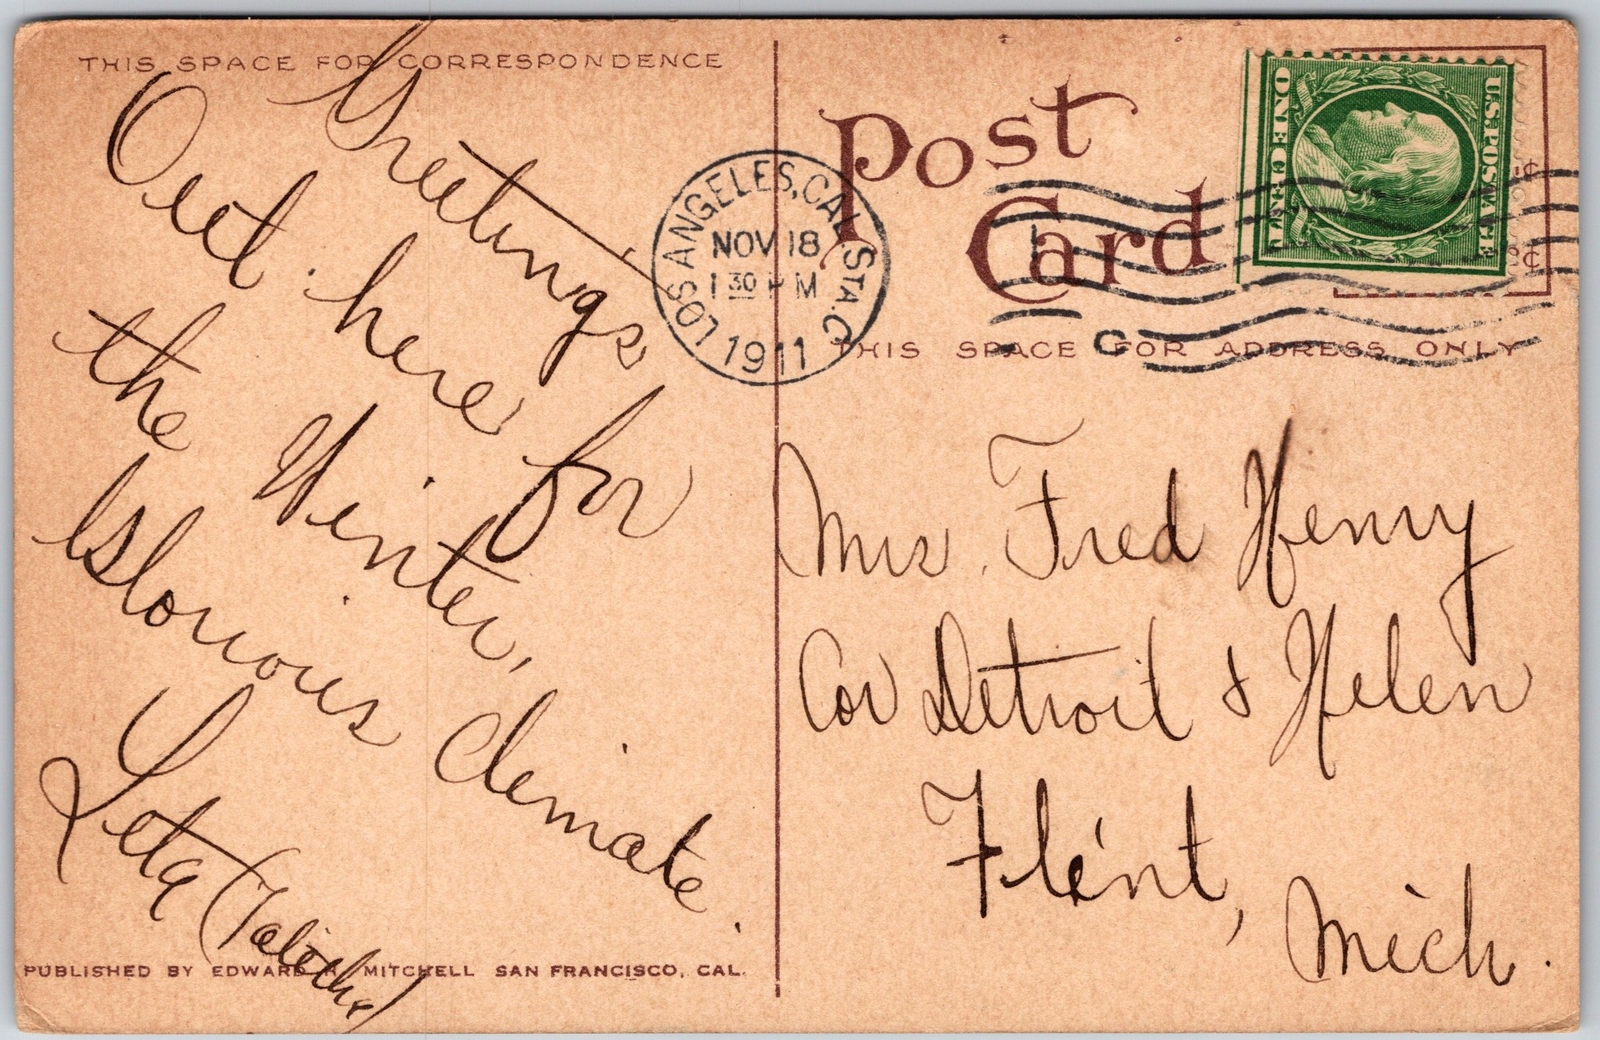 THIS SPACE FOR CORRESPONDENCE
Greetings,
Out here for
the Winter,
Glorious Climate.
Leta
PUBLISHED BY EDWARD H. MITCHELL SAN FRANCISCO, CAL.
Post
Card
LOS ANGELES, CAL. STA. C
NOV 18
1 30 PM
1911
C
U.S. POSTAGE
ONE CENT
THIS SPACE FOR ADDRESS ONLY
Mrs. Fred Henry
Cor Detroit & Helen
Flint,
Mich.